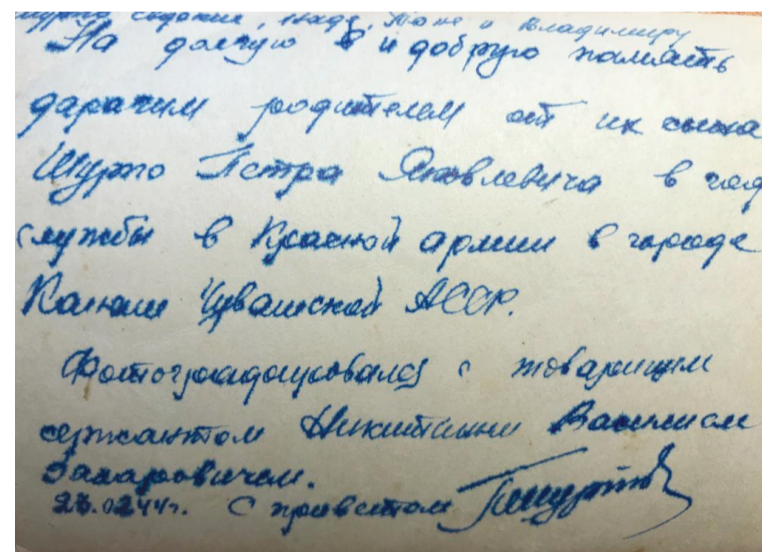 Наде, Тоне и Владимиру
На долгую и добрую память
дарагим родителям от их сына
Шурго Петра Яковлевича в год
службы в Красной армии в городе
Чувашской АССР.
Фотографировался с товарищем
сержантом Никитиным Василием
Захаровичем.
23.02.44г. С приветом